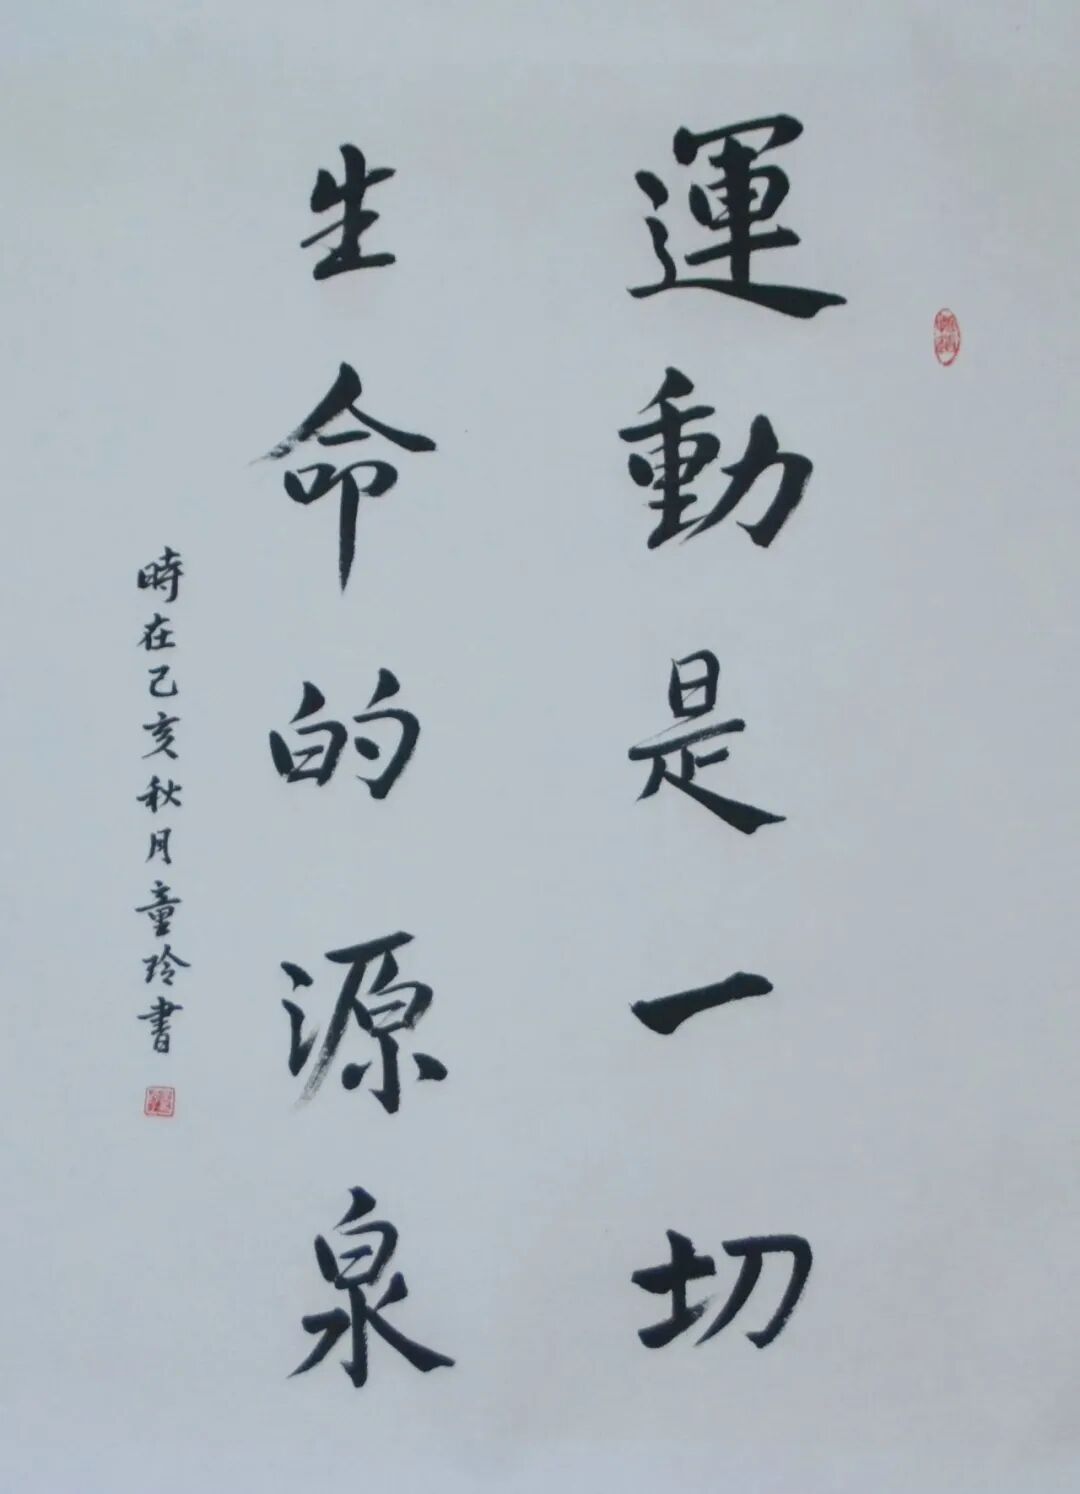 運動是一切
生命的源泉
時在己亥秋月童玲書